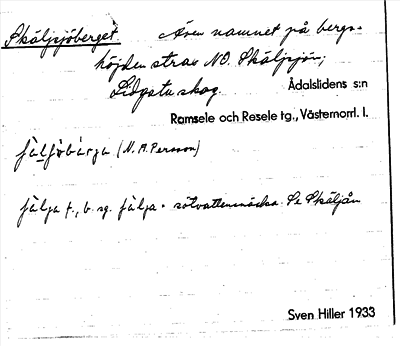 Skäljsjöberget. Även namnet på bergs-
höjden strax NO. Skäljsjön;
Lidgatu skog. Ådalslidens s:n
Ramsele och Resele tg., Västernorrl. l.
(N. A. Persson)
fälja f., b. sg. fälja = sötvattenssnäcka. Se Skäljån
Sven Hiller 1933